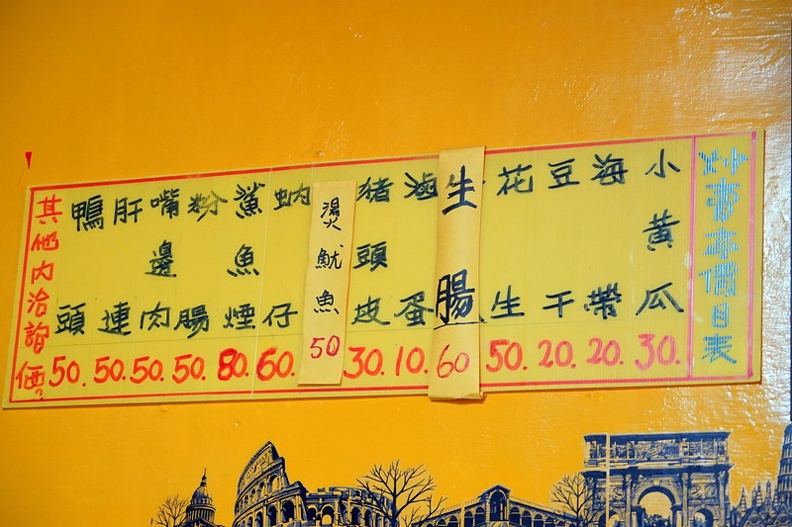 小黃瓜 30.
海帶 20.
豆干 20.
花生 50.
生腸 60
滷蛋 10.
豬頭皮 30.
燙魷魚 50
蚋仔 60.
鯊魚煙 80.
粉腸 50.
嘴邊肉 50.
肝連 50.
鴨頭 50.
其他內洽詢價。